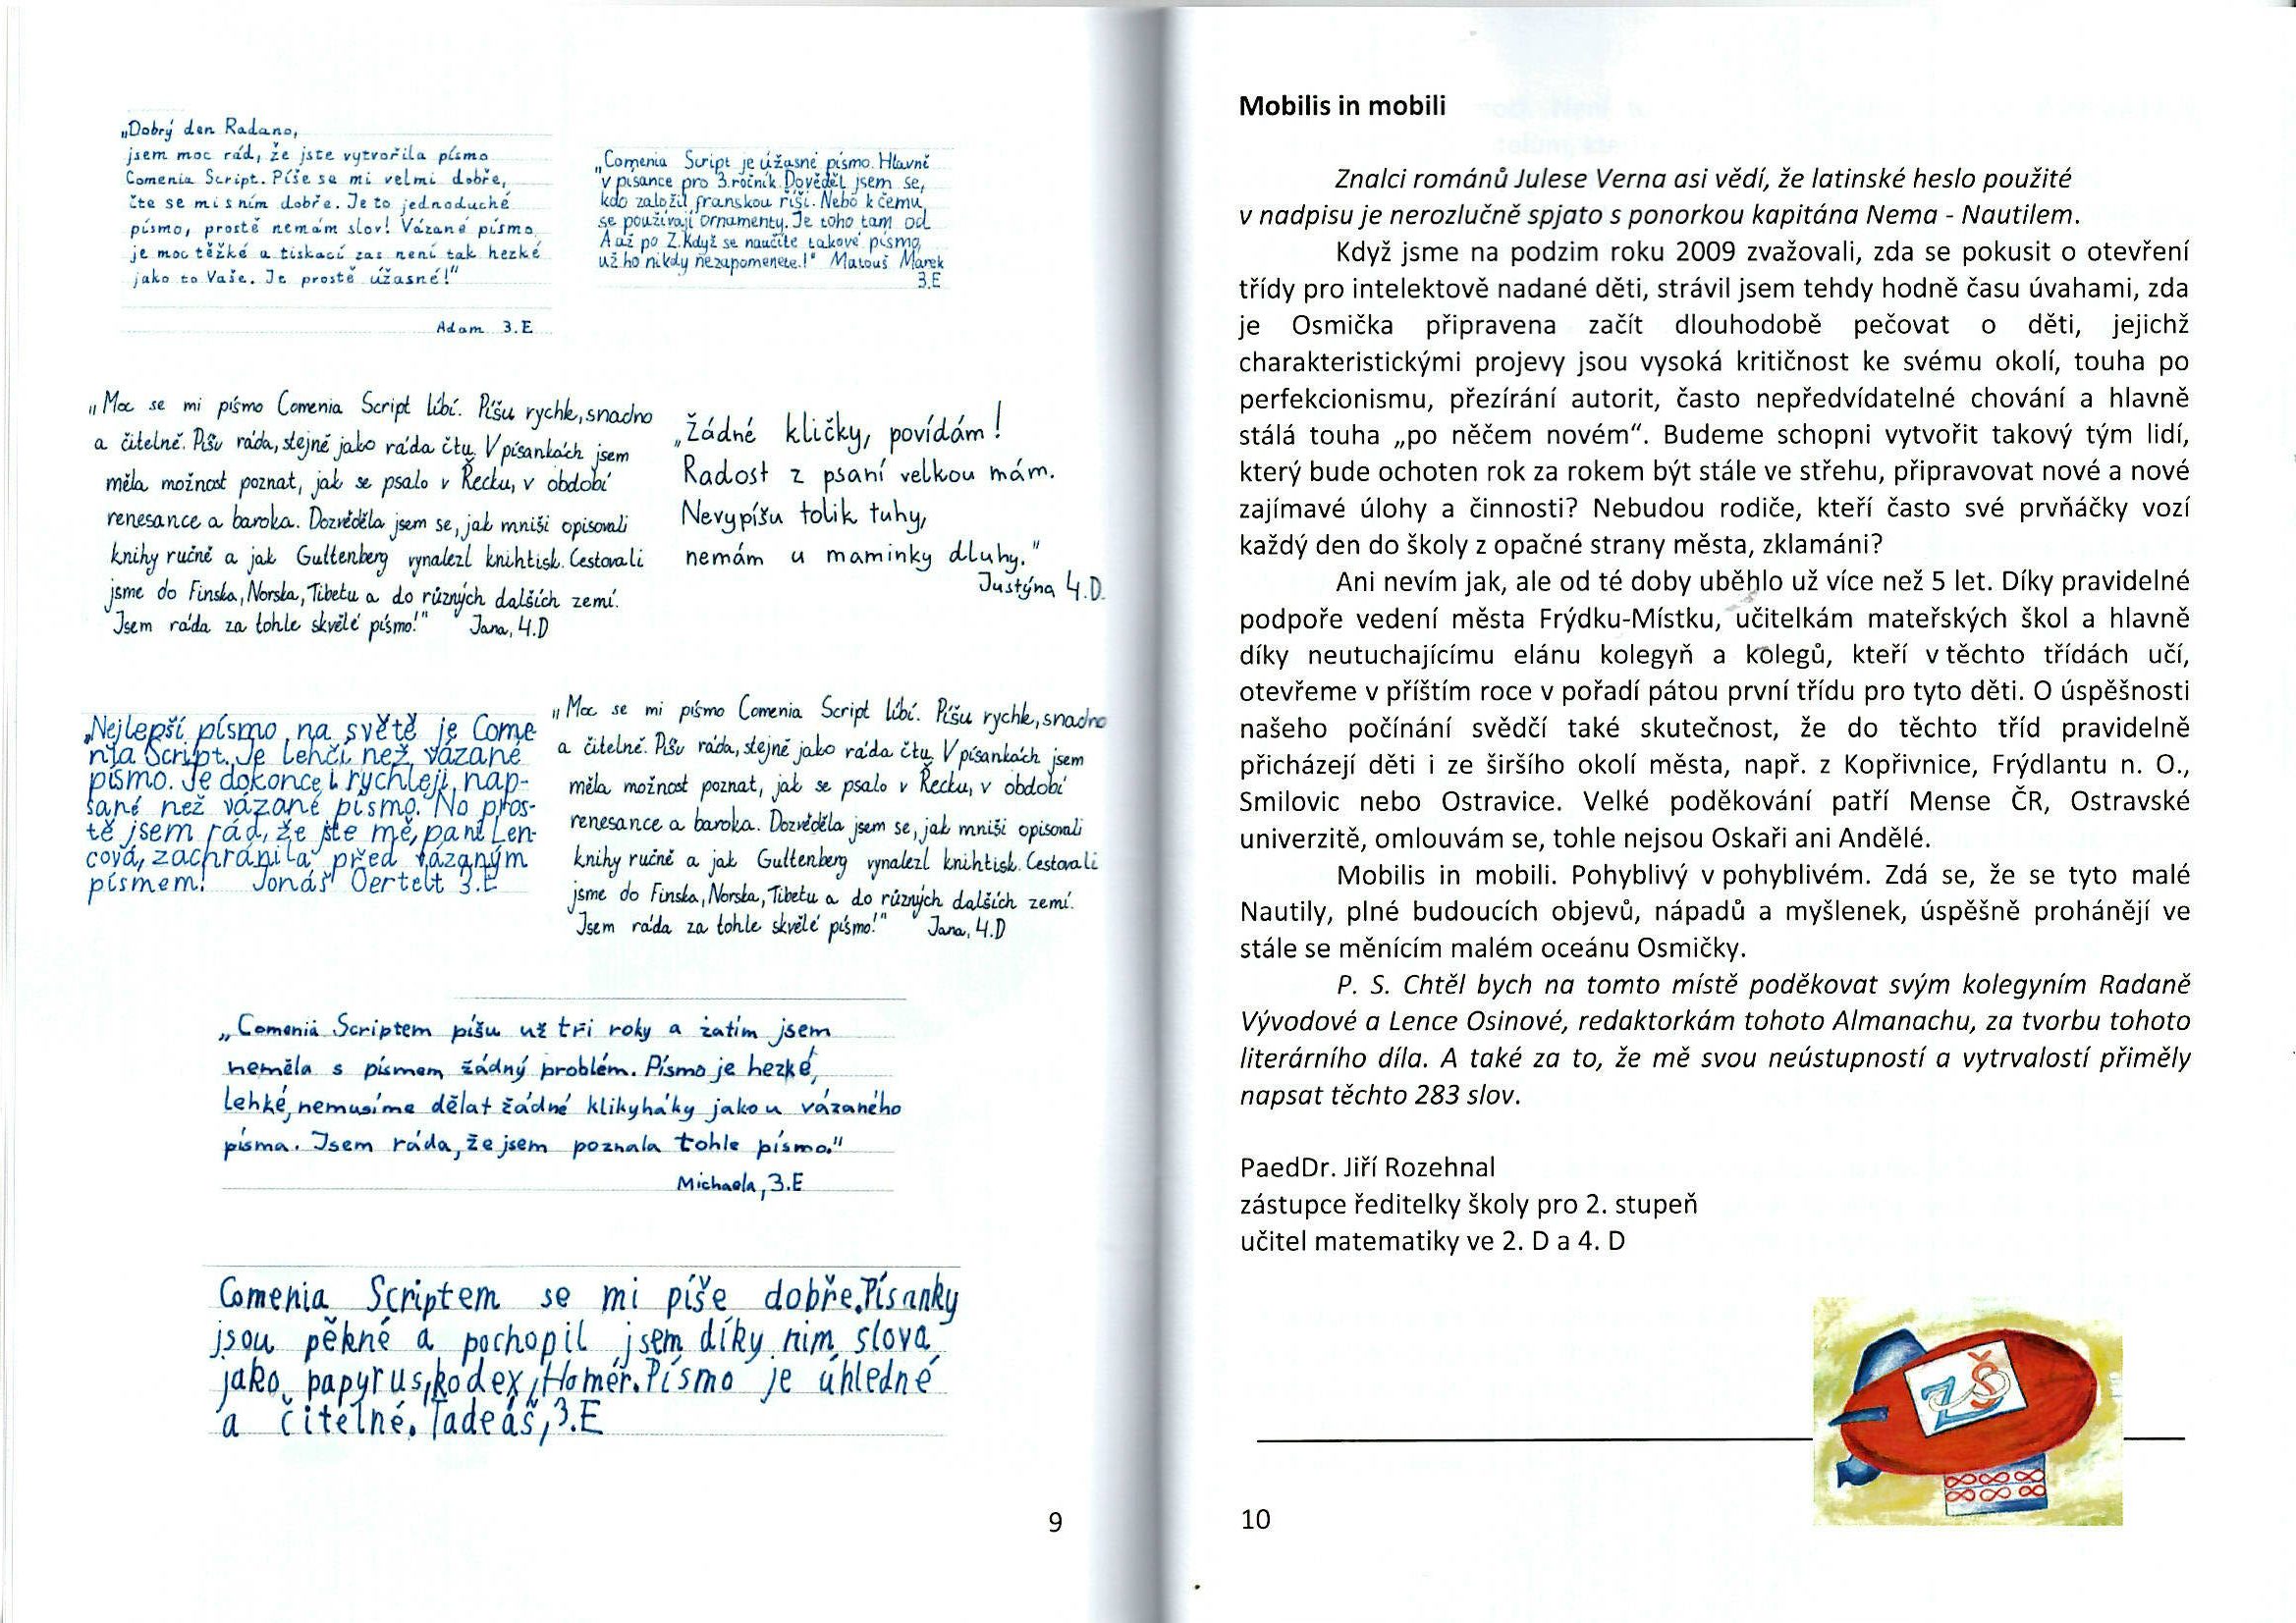 „Dobrý den Radano,
jsem moc rád, že jste vytvořila písmo
Comenia Script. Píše se mi velmi dobře,
čte se mi s ním dobře. Je to jednoduché
písmo, prostě nemám slov! Vázané písmo
je moc těžké a tiskací zas není tak hezké
jako to Vaše. Je prostě úžasné!“
Adam 3.E
„Comenia Script je úžasné písmo. Hlavně
v písance pro 3.ročník. Dověděl jsem se,
kdo založil franskou říši. Nebo k čemu
se používají ornamenty. Je toho tam od
A až po Z. Když se naučíte takové písmo,
už ho nikdy nezapomenete!“ Matouš Marek
3.E
„Moc se mi písmo Comenia Script líbí. Píšu rychle, snadno
a čitelně. Píšu ráda, stejně jako ráda čtu. V písankách jsem
měla možnost poznat, jak se psalo v Řecku, v období
renesance a baroka. Dozvěděla jsem se, jak mniši opisovali
knihy ručně a jak Gultenberg vynalezl knihtisk. Cestovali
jsme do Finska, Norska, Tibetu a do různých dalších zemí.
Jsem ráda za tohle skvělé písmo!“ Jana, 4.D
„Žádné kličky, povídám!
Radost z psaní velkou mám.
Nevypíšu tolik tuhy,
nemám u maminky dluhy.“
Justýna 4.D.
„Nejlepší písmo na světě je Come-
nia Script. Je lehčí než vázané
písmo. Je dokonce i rychleji nap-
sané než vázané písmo. No pros-
tě jsem rád, že jste mě, paní Len-
cová, zachránila před vázaným
písmem! Jonáš Oertelt 3.E
„Moc se mi písmo Comenia Script líbí. Píšu rychle, snadno
a čitelně. Píšu ráda, stejně jako ráda čtu. V písankách jsem
měla možnost poznat, jak se psalo v Řecku, v období
renesance a baroka. Dozvěděla jsem se, jak mniši opisovali
knihy ručně a jak Gultenberg vynalezl knihtisk. Cestovali
jsme do Finska, Norska, Tibetu a do různých dalších zemí.
Jsem ráda za tohle skvělé písmo!“ Jana, 4.D
„Comenia Scriptem píšu už tři roky a zatím jsem
neměla s písmem žádný problém. Písmo je hezké,
lehké, nemusíme dělat žádné klikyháky jako u vázaného
písma. Jsem ráda, že jsem poznala tohle písmo.“
Michaela, 3.E
Comenia Scriptem se mi píše dobře. Písanky
jsou pěkné a pochopil jsem díky nim slova
jako papyrus, kodex, Homér. Písmo je úhledné
a čitelné. Tadeáš, 3.E
9
Mobilis in mobili
Znalci románů Julese Verna asi vědí, že latinské heslo použité
v nadpisu je nerozlučně spjato s ponorkou kapitána Nema - Nautilem.
Když jsme na podzim roku 2009 zvažovali, zda se pokusit o otevření
třídy pro intelektově nadané děti, strávil jsem tehdy hodně času úvahami, zda
je Osmička připravena začít dlouhodobě pečovat o děti, jejichž
charakteristickými projevy jsou vysoká kritičnost ke svému okolí, touha po
perfekcionismu, přezírání autorit, často nepředvídatelné chování a hlavně
stálá touha „po něčem novém“. Budeme schopni vytvořit takový tým lidí,
který bude ochoten rok za rokem být stále ve střehu, připravovat nové a nové
zajímavé úlohy a činnosti? Nebudou rodiče, kteří často své prvňáčky vozí
každý den do školy z opačné strany města, zklamáni?
Ani nevím jak, ale od té doby uběhlo už více než 5 let. Díky pravidelné
podpoře vedení města Frýdku-Místku, učitelkám mateřských škol a hlavně
díky neutuchajícímu elánu kolegyň a kolegů, kteří v těchto třídách učí,
otevřeme v příštím roce v pořadí pátou první třídu pro tyto děti. O úspěšnosti
našeho počínání svědčí také skutečnost, že do těchto tříd pravidelně
přicházejí děti i ze širšího okolí města, např. z Kopřivnice, Frýdlantu n. O.,
Smilovic nebo Ostravice. Velké poděkování patří Mense ČR, Ostravské
univerzitě, omlouvám se, tohle nejsou Oskaři ani Andělé.
Mobilis in mobili. Pohyblivý v pohyblivém. Zdá se, že se tyto malé
Nautily, plné budoucích objevů, nápadů a myšlenek, úspěšně prohánějí ve
stále se měnícím malém oceánu Osmičky.
P. S. Chtěl bych na tomto místě poděkovat svým kolegyním Radaně
Vývodové a Lence Osinové, redaktorkám tohoto Almanachu, za tvorbu tohoto
literárního díla. A také za to, že mě svou neústupností a vytrvalostí přiměly
napsat těchto 283 slov.
PaedDr. Jiří Rozehnal
zástupce ředitelky školy pro 2. stupeň
učitel matematiky ve 2. D a 4. D
ZŠ
10